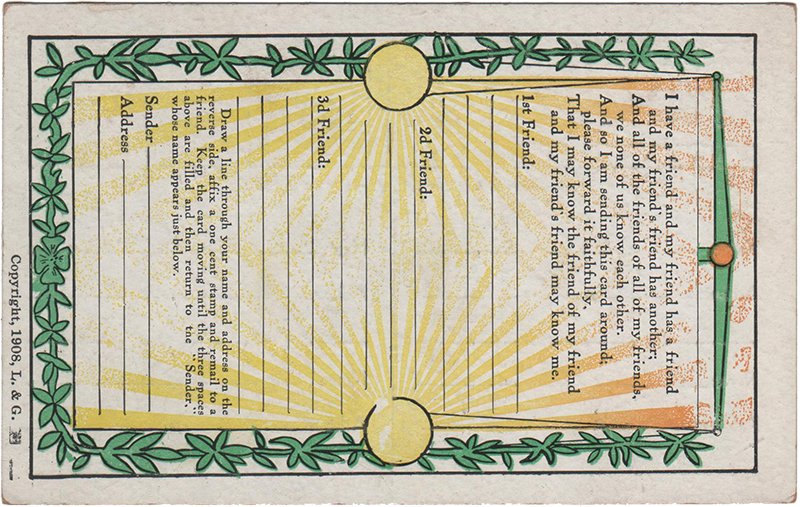 I have a friend and my friend has a friend
and my friend's friend has another;
And all of the friends of all of my friends,
we none of us know each other.
And so I am sending this card around;
please forward it faithfully.
That I may know the friend of my friend
and my friend's friend may know me.
1st Friend:
2d Friend:
3d Friend:
Draw a line through your name and address on the
reverse side, affix a one cent stamp and remail to a
friend. Keep the card moving until the three spaces
above are filled and then return to the "Sender."
whose name appears just below.
Sender
Address
Copyright, 1908, L. & G.